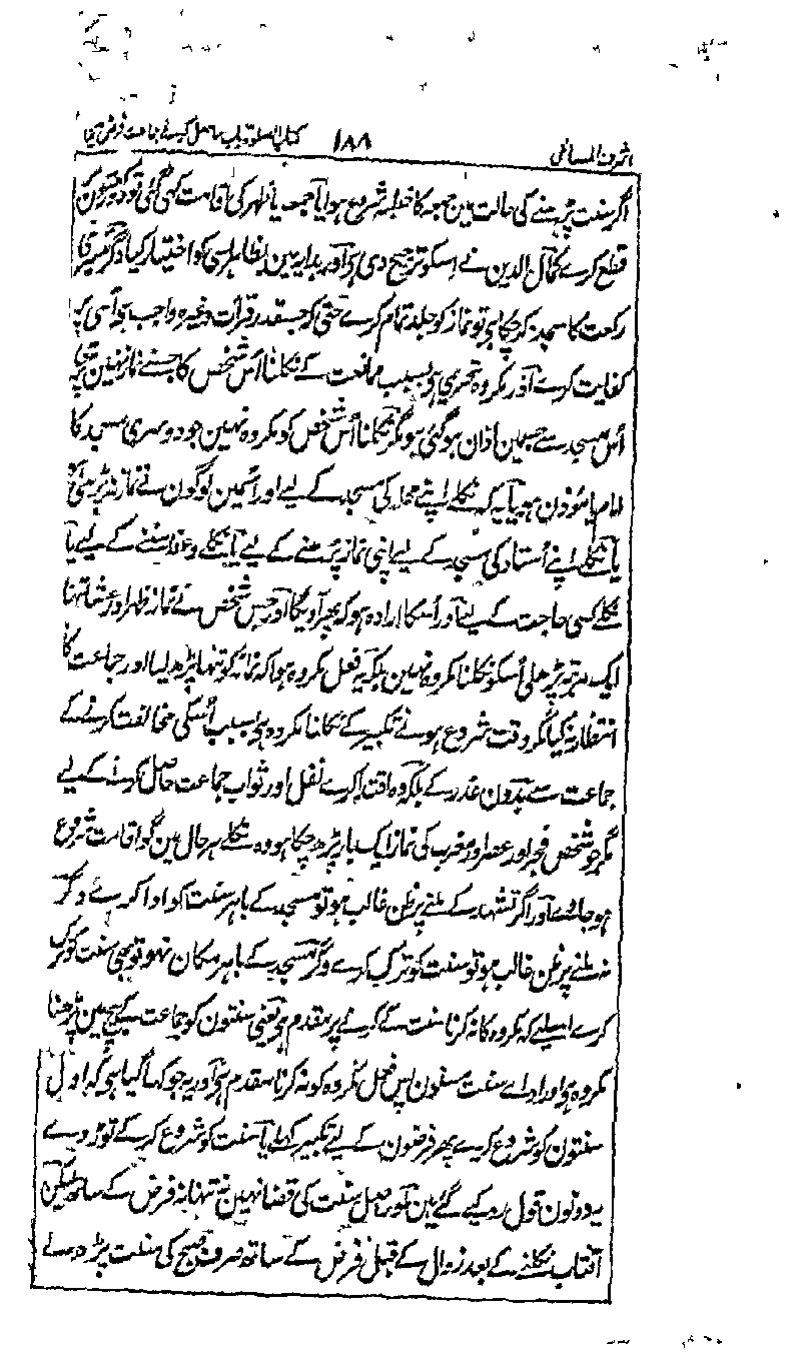 اشرف المسائل ۱۸۸ کتاب الصلوۃ باب
اگر سنت پڑہنے کی حالت مین جمعہ کا خطبہ شروع ہوا یا جمعہ یا ظہر کی اقامت کہی گئی تو
قطع کرے کمال الدین نے اسکو ترجیح دی ہی اور ہدایہ مین بظاہر اسی کو اختیار کیا و گر تیسری
رکعت کا سجدہ کر چکا ہی تو نماز کو جلد تمام کرے حتی کہ جسقدر قرأت وغیرہ واجب ہی اسی پر
کفایت کرے اور مکروہ تحریمی ہی بسبب ممانعت کے نکلنا اُس شخص کا جسنے نماز نہین پڑہی
اُس مسجد سے جسمین اذان ہو گئی ہو مگر نکلنا اُس شخص کو مکروہ نہین جو دوسری مسجد کا
امام یا مؤذن ہو یا یہ کہ نکلے اپنے محلہ کی مسجد کے لیے اور اسمین لوگون نے نماز نہ پڑہی ہو
یا نکلے اپنے اُستاد کی مسجد کے لیے اپنی نماز پڑہنے کے لیے یا نکلے وعظ سننے کے لیے یا
نکلے کسی حاجت کے لیے اور اُسکا ارادہ ہو کہ پھر آویگا اور جس شخص نے نماز ظہر اور عشا تنہا
ایک مرتبہ پڑھ لی اُسکو نکلنا مکروہ نہین بلکہ یہ فعل مکروہ ہوا کہ نماز کو تنہا پڑھ لیا اور جماعت کا
انتظار نہ کیا مگر وقت شروع ہونے تکبیر کے نکلنا مکروہ ہی بسبب اُسکی مخالفت کرنے کے
جماعت سے بدون عذر کے بلکہ وہ اقتدا کرے نفل اور ثواب جماعت حاصل کرنے کے لیے
مگر جو شخص فجر اور عصر اور مغرب کی نماز ایک بار پڑھ چکا ہو وہ نکلے ہر حال مین گو اقامت شروع
ہو جاوے اور اگر تشہد کے ملنے پر ظن غالب ہو تو مسجد کے باہر سنت کو ادا کرے و گر
نہ ملنے پر ظن غالب ہو تو سنت کو ترک کرے و گر مسجد کے باہر مکان نہو تو بھی سنت کو ترک
کرے اسلیے کہ مکروہ کا نہ کرنا سنت کے کرنے پر مقدم ہی یعنی سنتون کو جماعت کے پڑھنا
مکروہ ہی اور اداے سنت مسنون پس فعل مکروہ کو نہ کرنا مقدم ہی اور یہ جو کہا گیا ہی کہ اول
سنتون کو شروع کرے پھر فرضون کے لیے تکبیر کہلے یا سنت کو شروع کر کے توڑ دے
یہ دونون قول رد کیے گئے ہین اور اصل سنت کی قضا نہین نہ تنہا نہ فرض کے ساتھ لیکن
آفتاب نکلنے کے بعد زوال کے قبل فرض کے ساتھ صرف صبح کی سنت پڑھ لے